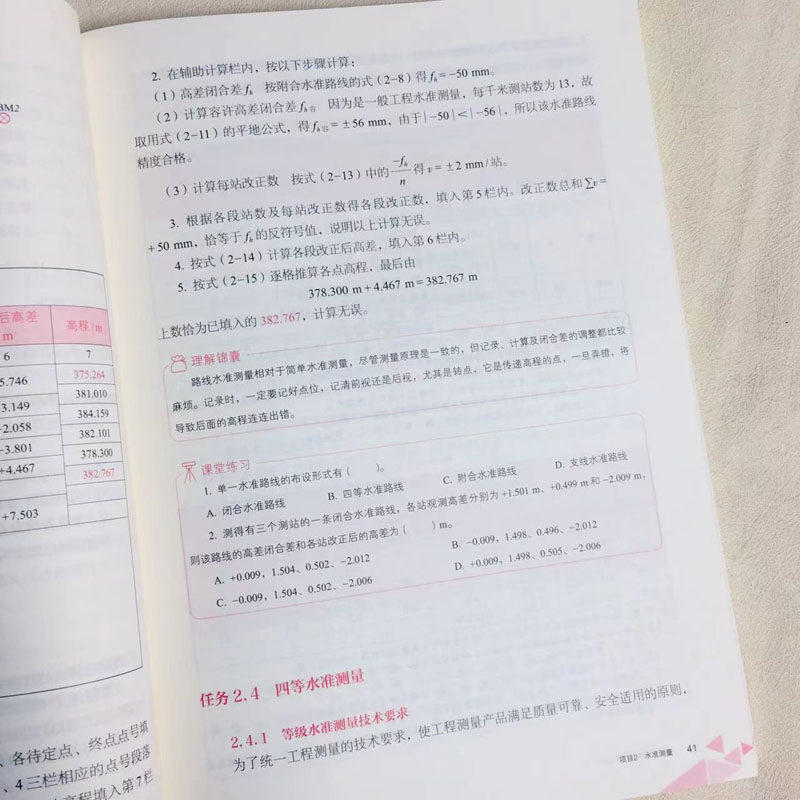 BM2
后高差
m
高程/m
6
7
5.746
375.264
381.010
3.149
384.159
-2.058
382.101
-3.801
378.300
+4.467
382.767
+7.503
、各待定点、终点点号填
、4三栏相应的点号段落
高程填入第7栏
2. 在辅助计算栏内，按以下步骤计算：
（1）高差闭合差fₕ 按附合水准路线的式（2-8）得fₕ=-50 mm。
（2）计算容许高差闭合差fₕ容 因为是一般工程水准测量，每千米测站数为13，故
取用式（2-11）的平地公式，得fₕ容=±56 mm，由于|-50|<|-56|，所以该水准路线
精度合格。
（3）计算每站改正数 按式（2-13）中的-fₕ/n得v=±2 mm/站。
3. 根据各段站数及每站改正数得各段改正数，填入第5栏内。改正数总和∑v=
+50 mm，恰等于fₕ的反符号值，说明以上计算无误。
4. 按式（2-14）计算各段改正后高差，填入第6栏内。
5. 按式（2-15）逐格推算各点高程，最后由
378.300 m+4.467 m=382.767 m
上数恰为已填入的382.767，计算无误。
理解锦囊
路线水准测量相对于简单水准测量，尽管测量原理是一致的，但记录、计算及闭合差的调整都比较
麻烦。记录时，一定要记好点位，记清前视还是后视，尤其是转点，它是传递高程的点，一旦弄错，将
导致后面的高程连连出错。
课堂练习
1. 单一水准路线的布设形式有（ ）。
A. 闭合水准路线 B. 四等水准路线 C. 附合水准路线 D. 支线水准路线
2. 测得有三个测站的一条闭合水准路线，各站观测高差分别为+1.501 m、+0.499 m和-2.009 m，
则该路线的高差闭合差和各站改正后的高差为（ ）m。
A. +0.009，1.504、0.502、-2.012 B. -0.009，1.498、0.496、-2.012
C. -0.009，1.504、0.502、-2.006 D. +0.009，1.498、0.505、-2.006
任务2.4 四等水准测量
2.4.1 等级水准测量技术要求
为了统一工程测量的技术要求，使工程测量产品满足质量可靠、安全适用的原则，
项目2 水准测量 41